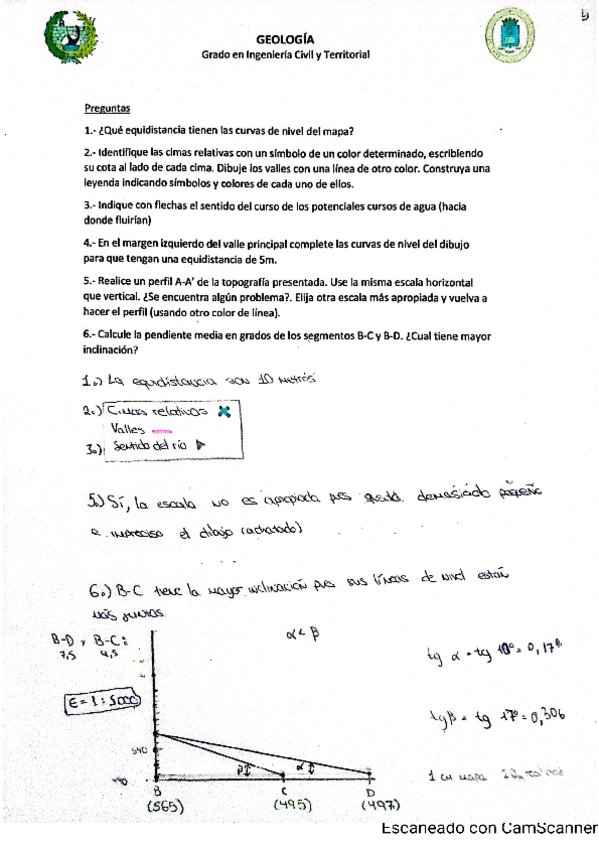 GEOLOGÍA
Grado en Ingeniería Civil y Territorial
Preguntas
1.- ¿Qué equidistancia tienen las curvas de nivel del mapa?
2.- Identifique las cimas relativas con un símbolo de un color determinado, escribiendo
su cota al lado de cada cima. Dibuje los valles con una línea de otro color. Construya una
leyenda indicando símbolos y colores de cada uno de ellos.
3.- Indique con flechas el sentido del curso de los potenciales cursos de agua (hacia
donde fluirían)
4.- En el margen izquierdo del valle principal complete las curvas de nivel del dibujo
para que tengan una equidistancia de 5m.
5.- Realice un perfil A-A' de la topografía presentada. Use la misma escala horizontal
que vertical. ¿Se encuentra algún problema?. Elija otra escala más apropiada y vuelva a
hacer el perfil (usando otro color de línea).
6.- Calcule la pendiente media en grados de los segmentos B-C y B-D. ¿Cual tiene mayor
inclinación?
1.) La equidistancia son 10 metros
2.) Cimas relativas
Valles
3.) Sentido del río
5.) Sí, la escala no es apropiada pues queda demasiado pequeño
e impreciso el dibujo (achatado)
6.) B-C tiene la mayor inclinación pues sus líneas de nivel están
más juntas.
B-D y B-C:
7,5 4,5
α < β
tg α = tg 10º = 0,17
E = 1:5000
tg β = tg 17º = 0,306
540
β α
1 cm mapa
B C D
(565) (495) (497)
Escaneado con CamScanner